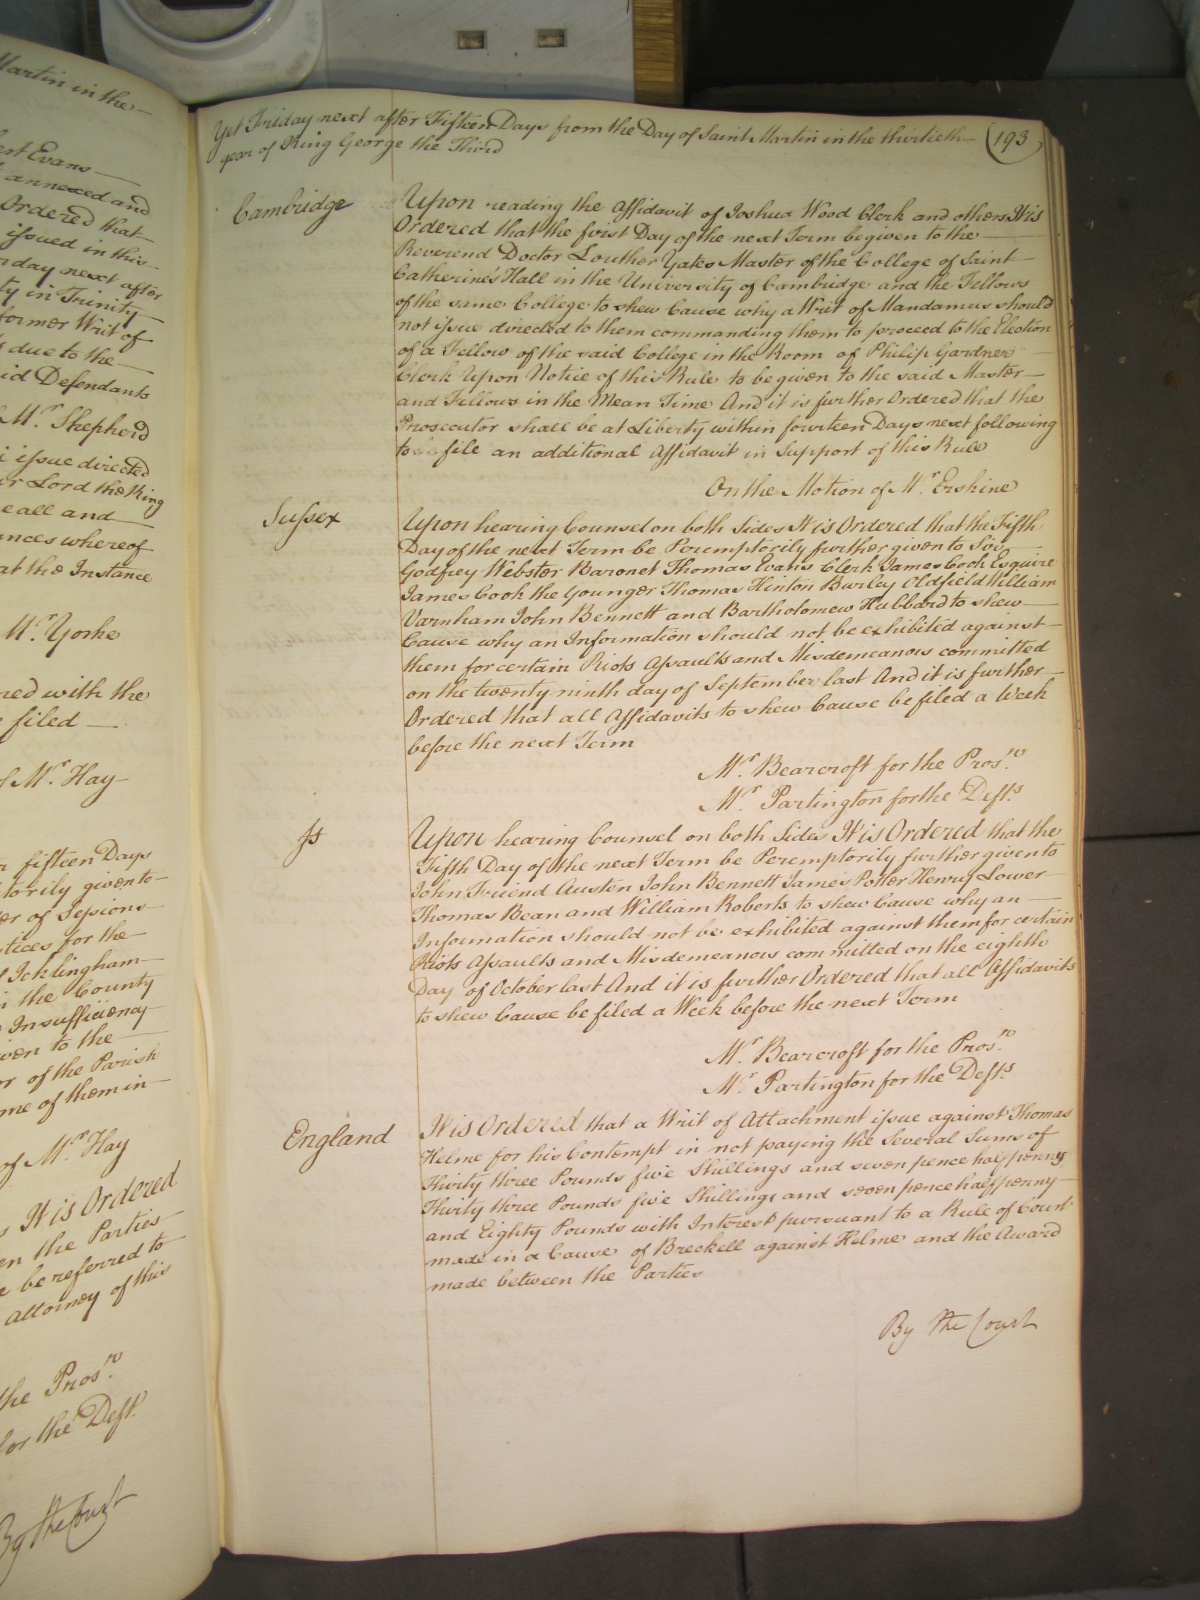 Martin in the
ert Evans
annexed and
Ordered that
issued in this
rday next after
ty in Trinity
former Writ of
s due to the
id Defendants
Mr. Shepherd
issue directed
r Lord the King
e all and
ances whereof
at the Instance
Mr. Yorke
red with the
filed
Mr. Hay
fifteen Days
torily given to
er of Sessions
tices for the
Icklingham
the County
Insufficiency
ven to the
or of the Parish
me of them in
of Mr. Hay
s It is Ordered
en the Parties
e be referred to
Attorney of this
the Prosr.
for the Deft.
By the Court
Yet Friday next after Fifteen Days from the Day of Saint Martin in the thirtieth (193
year of King George the Third
Cambridge
Upon reading the Affidavit of Joshua Wood Clerk and others It is
Ordered that the first Day of the next Term be given to the
Reverend Doctor Louther Yates Master of the College of Saint
Catherine's Hall in the University of Cambridge and the Fellows
of the same College to shew Cause why a Writ of Mandamus should
not issue directed to them commanding them to proceed to the Election
of a Fellow of the said College in the Room of Philip Gardner
Clerk Upon Notice of this Rule to be given to the said Master
and Fellows in the Mean Time And it is further Ordered that the
Prosecutor shall be at Liberty within fourteen Days next following
to file an additional Affidavit in Support of this Rule
On the Motion of Mr. Erskine
Sussex
Upon hearing Counsel on both Sides It is Ordered that the Fifth
Day of the next Term be Peremptorily further given to Sir
Godfrey Webster Baronet Thomas Evans Clerk James Cook Esquire
James Cook the Younger Thomas Hinton Burley Oldfield William
Varnham John Bennett and Bartholomew Hubbard to shew
Cause why an Information should not be exhibited against
them for certain Riots Assaults and Misdemeanors committed
on the twenty ninth day of September last And it is further
Ordered that all Affidavits to shew Cause be filed a Week
before the next Term
Mr. Bearcroft for the Prosr.
Mr. Partington for the Defts.
Js
Upon hearing Counsel on both Sides It is Ordered that the
Fifth Day of the next Term be Peremptorily further given to
John Friend Austen John Bennett James Potter Henry Lower
Thomas Bean and William Roberts to shew Cause why an
Information should not be exhibited against them for certain
Riots Assaults and Misdemeanors committed on the eighth
Day of October last And it is further Ordered that all Affidavits
to shew Cause be filed a Week before the next Term
Mr. Bearcroft for the Prosr.
Mr. Partington for the Defts.
England
It is Ordered that a Writ of Attachment issue against Thomas
Helme for his Contempt in not paying the Several Sums of
Thirty three Pounds five Shillings and seven pence halfpenny
Thirty three Pounds five Shillings and seven pence halfpenny
and Eighty Pounds with Interest pursuant to a Rule of Court
made in a Cause of Breckell against Helme and the Award
made between the Parties
By the Court